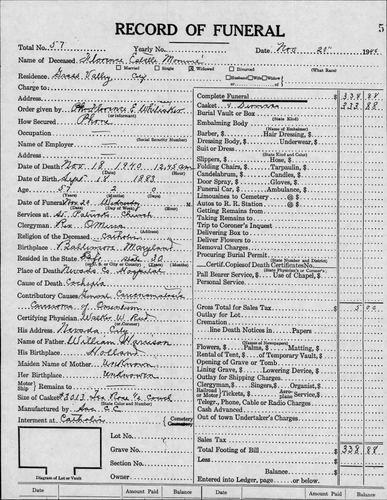 RECORD OF FUNERAL
Total No. 57 Yearly No. Date Nov. 20" 194
Name of Deceased Florence Estelle
Married Single Widowed Divorced (What Race)
Residence Grass Valley Husband Wife Widow of
Charge to
Address
Order given by Mrs Florence E. Whitaker
(or informant)
How Secured Phone
Occupation
(Social Security Number)
Name of Employer
Address
Date of Death Nov. 18 1940 12:45am
Date of Birth Sept. 18 1883
Age 57 2 0
(Years) (Months) (Days)
Date of Funeral Nov 20 Wednesday
Services at St. Patricks Church
Clergyman Rev. O'Meara
Religion of the Deceased Catholic
Birthplace Baltimore, Maryland
Resided in the State 30
Place of Death Nevada Co. Hospital
Cause of Death Cachexia
Contributory Causes General Carcinomatosis
Carcinoma of
Certifying Physician Walter W. Reed
His Address Nevada City
(or Coroner)
Name of Father William Harrison
His Birthplace Holland
Maiden Name of Mother Unknown
Her Birthplace Unknown
Motor Ship Remains to
Size of Casket
(State Color and Number)
Manufactured by C.C.
Interment at Catholic Cemetery
Crematory
Lot No.
Grave No.
Section No.
Owner
Diagram of Lot or Vault
Complete Funeral 338 88
Casket 333 88
Burial Vault or Box
(State Kind)
Embalming Body
(Name of Embalmer)
Barber, $ Hair Dressing, $
Dressing Body, $ Underwear, $
Suit or Dress
(State Kind and Color)
Slippers, $ Hose, $
Folding Chairs, $ Tarpaulin, $
Candelabrum, $ Candles, $
Door Spray, $ Gloves, $
Funeral Car, $ Ambulance, $
Limousines to Cemetery @ $
Autos to R. R. Station @ $
Getting Remains from
Taking Remains to
Trip to Coroner's Inquest
Delivering Box to
Deliver Flowers to
Removal Charges
Procuring Burial Permit
(State Number and District)
Certif. Copies of Death Certificates No.
(State Physician's or Coroner's)
Pall Bearer Service, $ Use of Chapel, $
Personal Service
Gross Total for Sales Tax $ 5 00
Outlay for Lot
Cremation
line Death Notices in Papers
(Names of Newspapers)
Flowers, $ Palms, $ Matting, $
Rental of Tent, $ of Temporary Vault, $
Opening of Grave or Tomb
Lining Grave, $ Lowering Device, $
Outlay for Shipping Charges
Clergyman, $ Singers, $ Organist, $
Railroad Motor Tickets, $ Aeroplane Service, $
Telegr., Phone, Cable or Radio Charges
Cash Advanced
Out of town Undertaker's Charges
Sales Tax
Total Footing of Bill $ 338 88
Less
Balance
Entered into Ledger, page or below.
Date Amount Paid Balance Date Amount Paid Balance